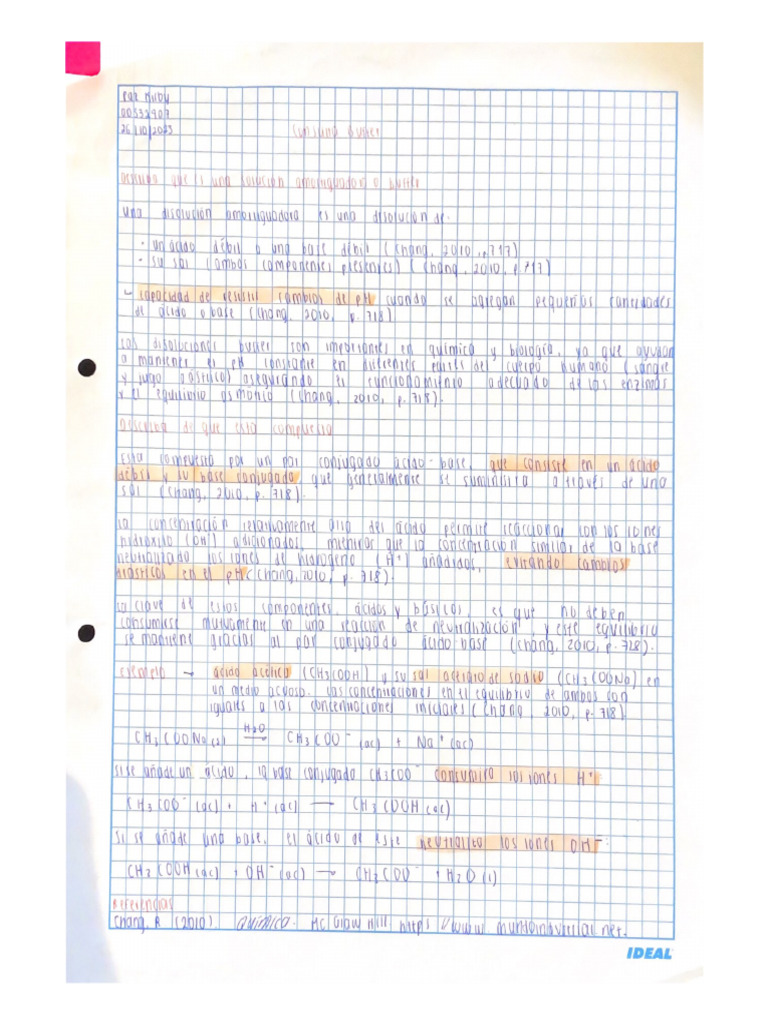 00332907
26/10/2023
Consigna Buffer
Describa que es una solución amortiguadora o buffer
Una disolución amortiguadora es una disolución de:
• un ácido débil o una base débil (Chang, 2010, p.717)
• su sal (ambos componentes presentes) (Chang, 2010, p.717)
- capacidad de resistir cambios de pH cuando se agregan pequeñas cantidades
de ácido o base (Chang, 2010, p. 718)
Las disoluciones buffer son importantes en química y biología, ya que ayudan
a mantener el pH constante en diferentes partes del cuerpo humano (sangre
y jugo gástrico) asegurando el funcionamiento adecuado de las enzimas
y el equilibrio osmótico (Chang, 2010, p. 718).
Describa de que esta compuesta
Esta compuesta por un par conjugado ácido-base, que consiste en un ácido
débil y su base conjugada que generalmente se suministra a través de una
sal (Chang, 2010, p. 718).
La concentración relativamente alta del ácido permite reaccionar con los iones
hidroxilo (OH⁻) adicionados, mientras que la concentración similar de la base
neutralizado los iones de hidrogeno (H⁺) añadidos, evitando cambios
drásticos en el pH (Chang, 2010, p. 718).
La clave de estos componentes, ácidos y básicos, es que no deben
consumirse mutuamente en una reacción de neutralización, y este equilibrio
se mantiene gracias al par conjugado ácido-base (Chang, 2010, p. 728).
ejemplo → ácido acético (CH₃COOH) y su sal acetato de sodio (CH₃COONa) en
un medio acuoso. Las concentraciones en el equilibrio de ambos son
iguales a las concentraciones iniciales (Chang, 2010, p. 718)
H₂O
CH₃COONa(s) ⟶ CH₃COO⁻(ac) + Na⁺(ac)
Si se añade un ácido, la base conjugada CH₃COO⁻ consumira los iones H⁺
CH₃COO⁻(ac) + H⁺(ac) ⟶ CH₃COOH(ac)
Si se añade una base, el ácido de este neutraliza los iones OH⁻:
CH₃COOH(ac) + OH⁻(ac) → CH₃COO⁻ + H₂O(l)
Referencias
Chang, R (2010). Química. Mc Graw Hill. https://www.mundoindustrial.net.
IDEAL